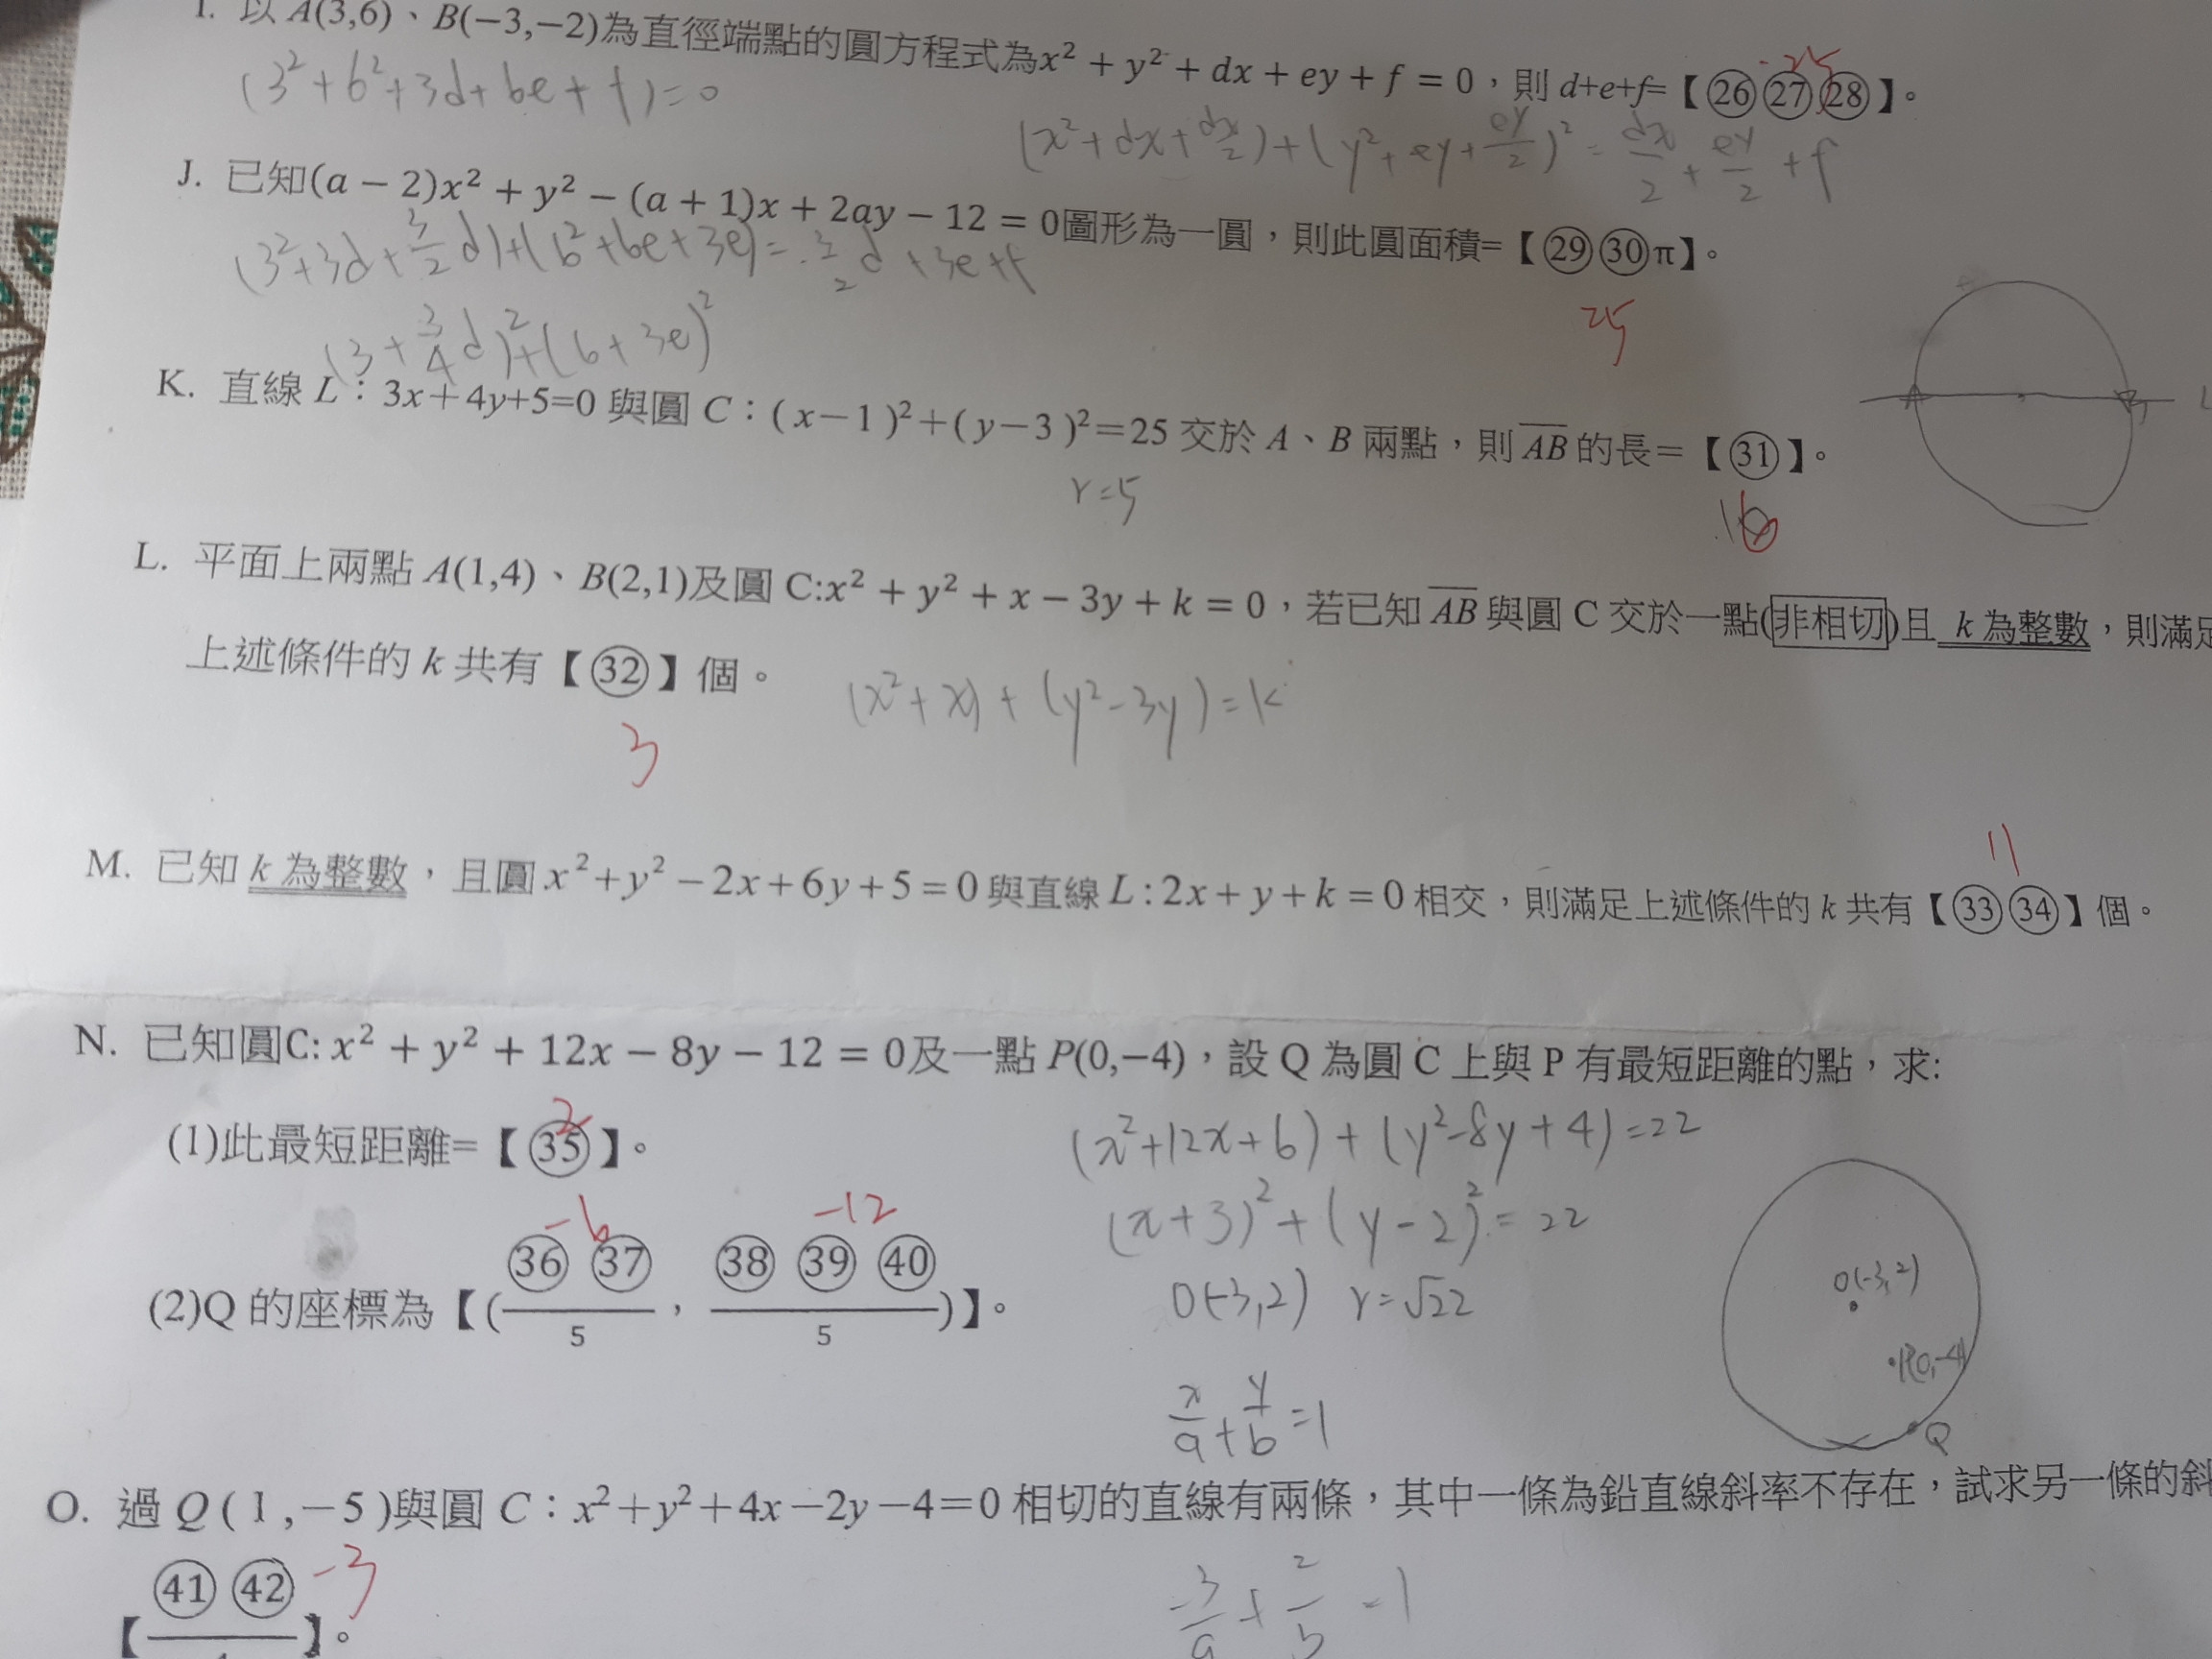 I. 以 A(3,6)、B(−3,−2)為直徑端點的圓方程式為x² + y² + dx + ey + f = 0，則 d+e+f=【㉖㉗㉘】。
-25
(3²+6²+3d+6e+f)=0
(x²+dx+dx/2)+(y²+ey+ey/2)²=dx/2+ey/2+f
J. 已知(a − 2)x² + y² − (a + 1)x + 2ay − 12 = 0圖形為一圓，則此圓面積=【㉙㉚π】。
25
(3²+3d+3/2d)+(6²+6e+3e)=3/2d+3e+f
(3+3/4d)²+(6+3e)²
K. 直線 L：3x＋4y+5=0 與圓 C：(x－1)²＋(y－3)²＝25 交於 A、B 兩點，則 AB 的長＝【㉛】。
r=5
6
A
L
L. 平面上兩點 A(1,4)、B(2,1)及圓 C:x² + y² + x − 3y + k = 0，若已知 AB 與圓 C 交於一點(非相切)且 k 為整數，則滿足
上述條件的 k 共有【㉜】個。
3
(x²+x)+(y²-3y)=k
M. 已知 k 為整數，且圓 x²+y²−2x+6y+5=0 與直線 L:2x+y+k=0 相交，則滿足上述條件的 k 共有【㉝㉞】個。
11
N. 已知圓C: x² + y² + 12x − 8y − 12 = 0及一點 P(0,−4)，設 Q 為圓 C 上與 P 有最短距離的點，求:
(1)此最短距離=【㉟】。
2
(x²+12x+6)+(y²-8y+4)=22
(x+3)²+(y-2)²=22
O(-3,2) r=√22
-6
-12
(2)Q 的座標為【(㊱㊲/5，㊳㊴㊵/5)】。
x/a+y/b=1
O(-3,2)
P(0,-4)
Q
O. 過 Q(1,−5)與圓 C：x²＋y²＋4x－2y－4＝0 相切的直線有兩條，其中一條為鉛直線斜率不存在，試求另一條的斜
【㊶㊷】。
-3
-3/a+2/b=1